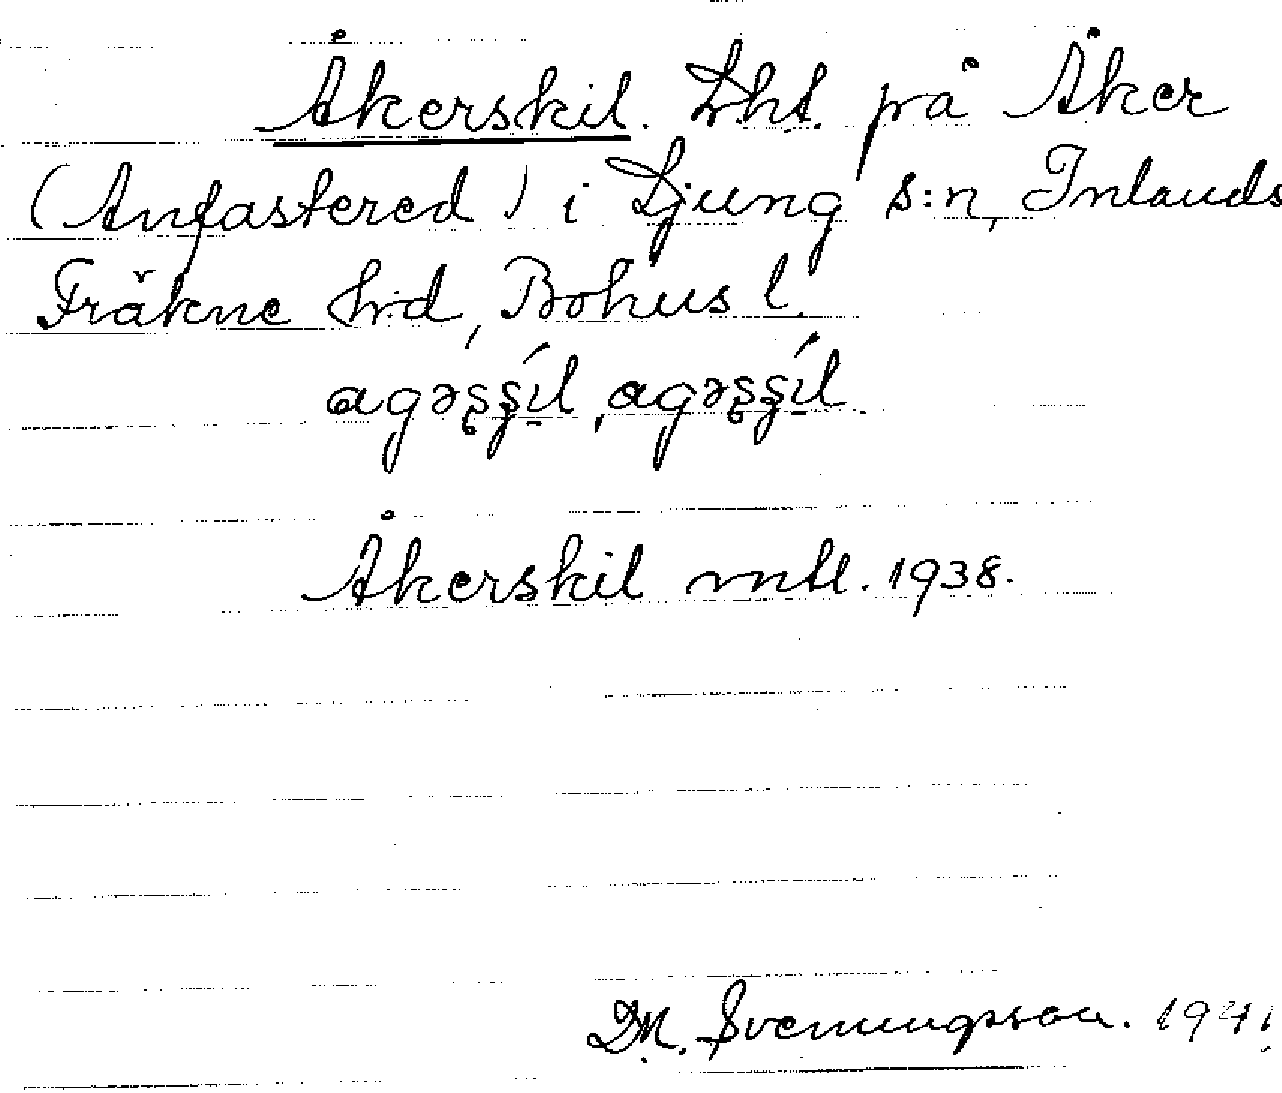 Åkerskil. Lht. på Åker
(Anfastered) i Ljung s:n, Inlands
Fräkne hd, Bohus l.
Åkerskil mtl. 1938.
D.M. Svenungsson. 1941.